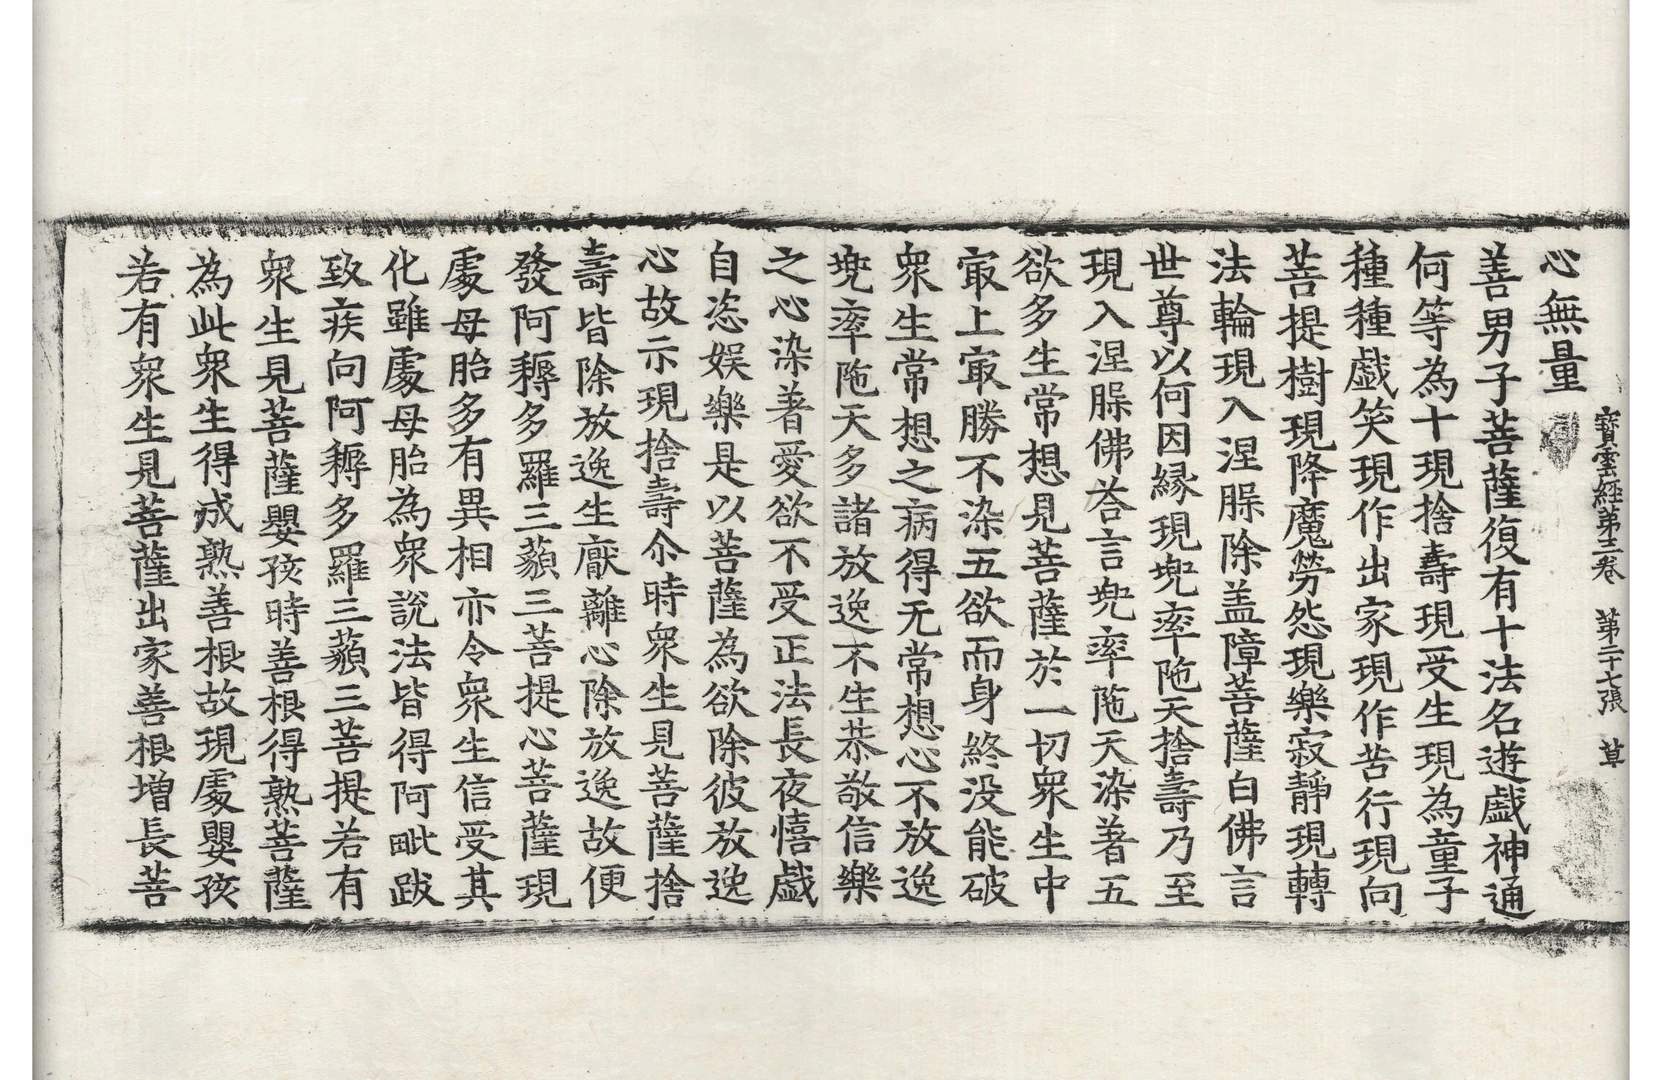 寶雲經第三卷　第二十七張　草
心無量
善男子菩薩復有十法名遊戲神通
何等為十現捨壽現受生現為童子
種種戲笑現作出家現作苦行現向
菩提樹現降魔勞怨現樂寂靜現轉
法輪現入涅槃除盖障菩薩白佛言
世尊以何因緣現兠率陁天捨壽乃至
現入涅槃佛荅言兠率陁天染著五
欲多生常想見菩薩於一切衆生中
㝡上㝡勝不染五欲而身終没能破
衆生常想之病得无常想心不放逸
兠率陁天多諸放逸不生恭敬信樂
之心染著愛欲不受正法長夜憘戲
自恣娱樂是以菩薩為欲除彼放逸
心故示現捨壽尒時衆生見菩薩捨
壽皆除放逸生厭離心除放逸故便
發阿耨多羅三藐三菩提心菩薩現
處母胎多有異相亦令衆生信受其
化雖處母胎為衆說法皆得阿毗跋
致疾向阿耨多羅三藐三菩提若有
衆生見菩薩嬰孩時善根得熟菩薩
為此衆生得成熟善根故現處嬰孩
若有衆生見菩薩出家善根增長菩